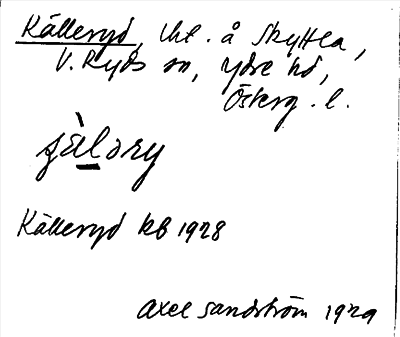 Källeryd, lht. å Skyttla,
V. Ryds sn, Ydre hd,
Österg. l.
Källeryd kb 1928
Axel Sandström 1929